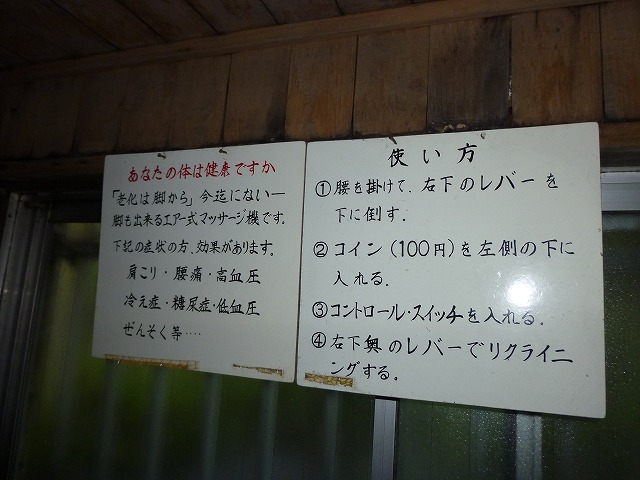 あなたの体は健康ですか
「老化は脚から」今迄にない―
脚も出来るエアー式マッサージ機です。
下記の症状の方、効果があります。
肩こり・腰痛・高血圧
冷え症・糖尿症・低血圧
ぜんそく等‥‥
使い方
①腰を掛けて、右下のレバーを
下に倒す.
②コイン(100円)を左側の下に
入れる.
③コントロール・スイッチを入れる.
④右下奥のレバーでリクライニ
ングする。